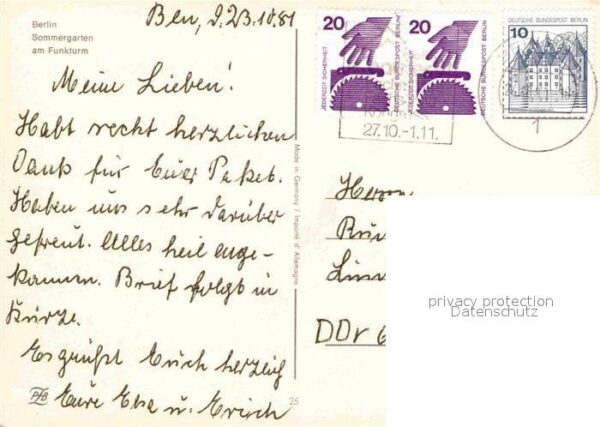 Berlin
Sommergarten
am Funkturm
Bln, d. 23.10.81
Meine Lieben!
Habt recht herzlichen
Dank für Euer Paket.
Haben uns sehr darüber
gefreut. Alles heil ange-
kommen. Brief folgt in
Kürze.
Es grüßt Euch herzlich
Eure Elsa u. Erich
PfB
25
Made in Germany / Importé d'Allemagne
20
JEDERZEIT SICHERHEIT
DEUTSCHE BUNDESPOST BERLIN
20
JEDERZEIT SICHERHEIT
DEUTSCHE BUNDESPOST BERLIN
DEUTSCHE BUNDESPOST BERLIN
10
27.10.-1.11.
1
Herrn
DDr 6
privacy protection
Datenschutz